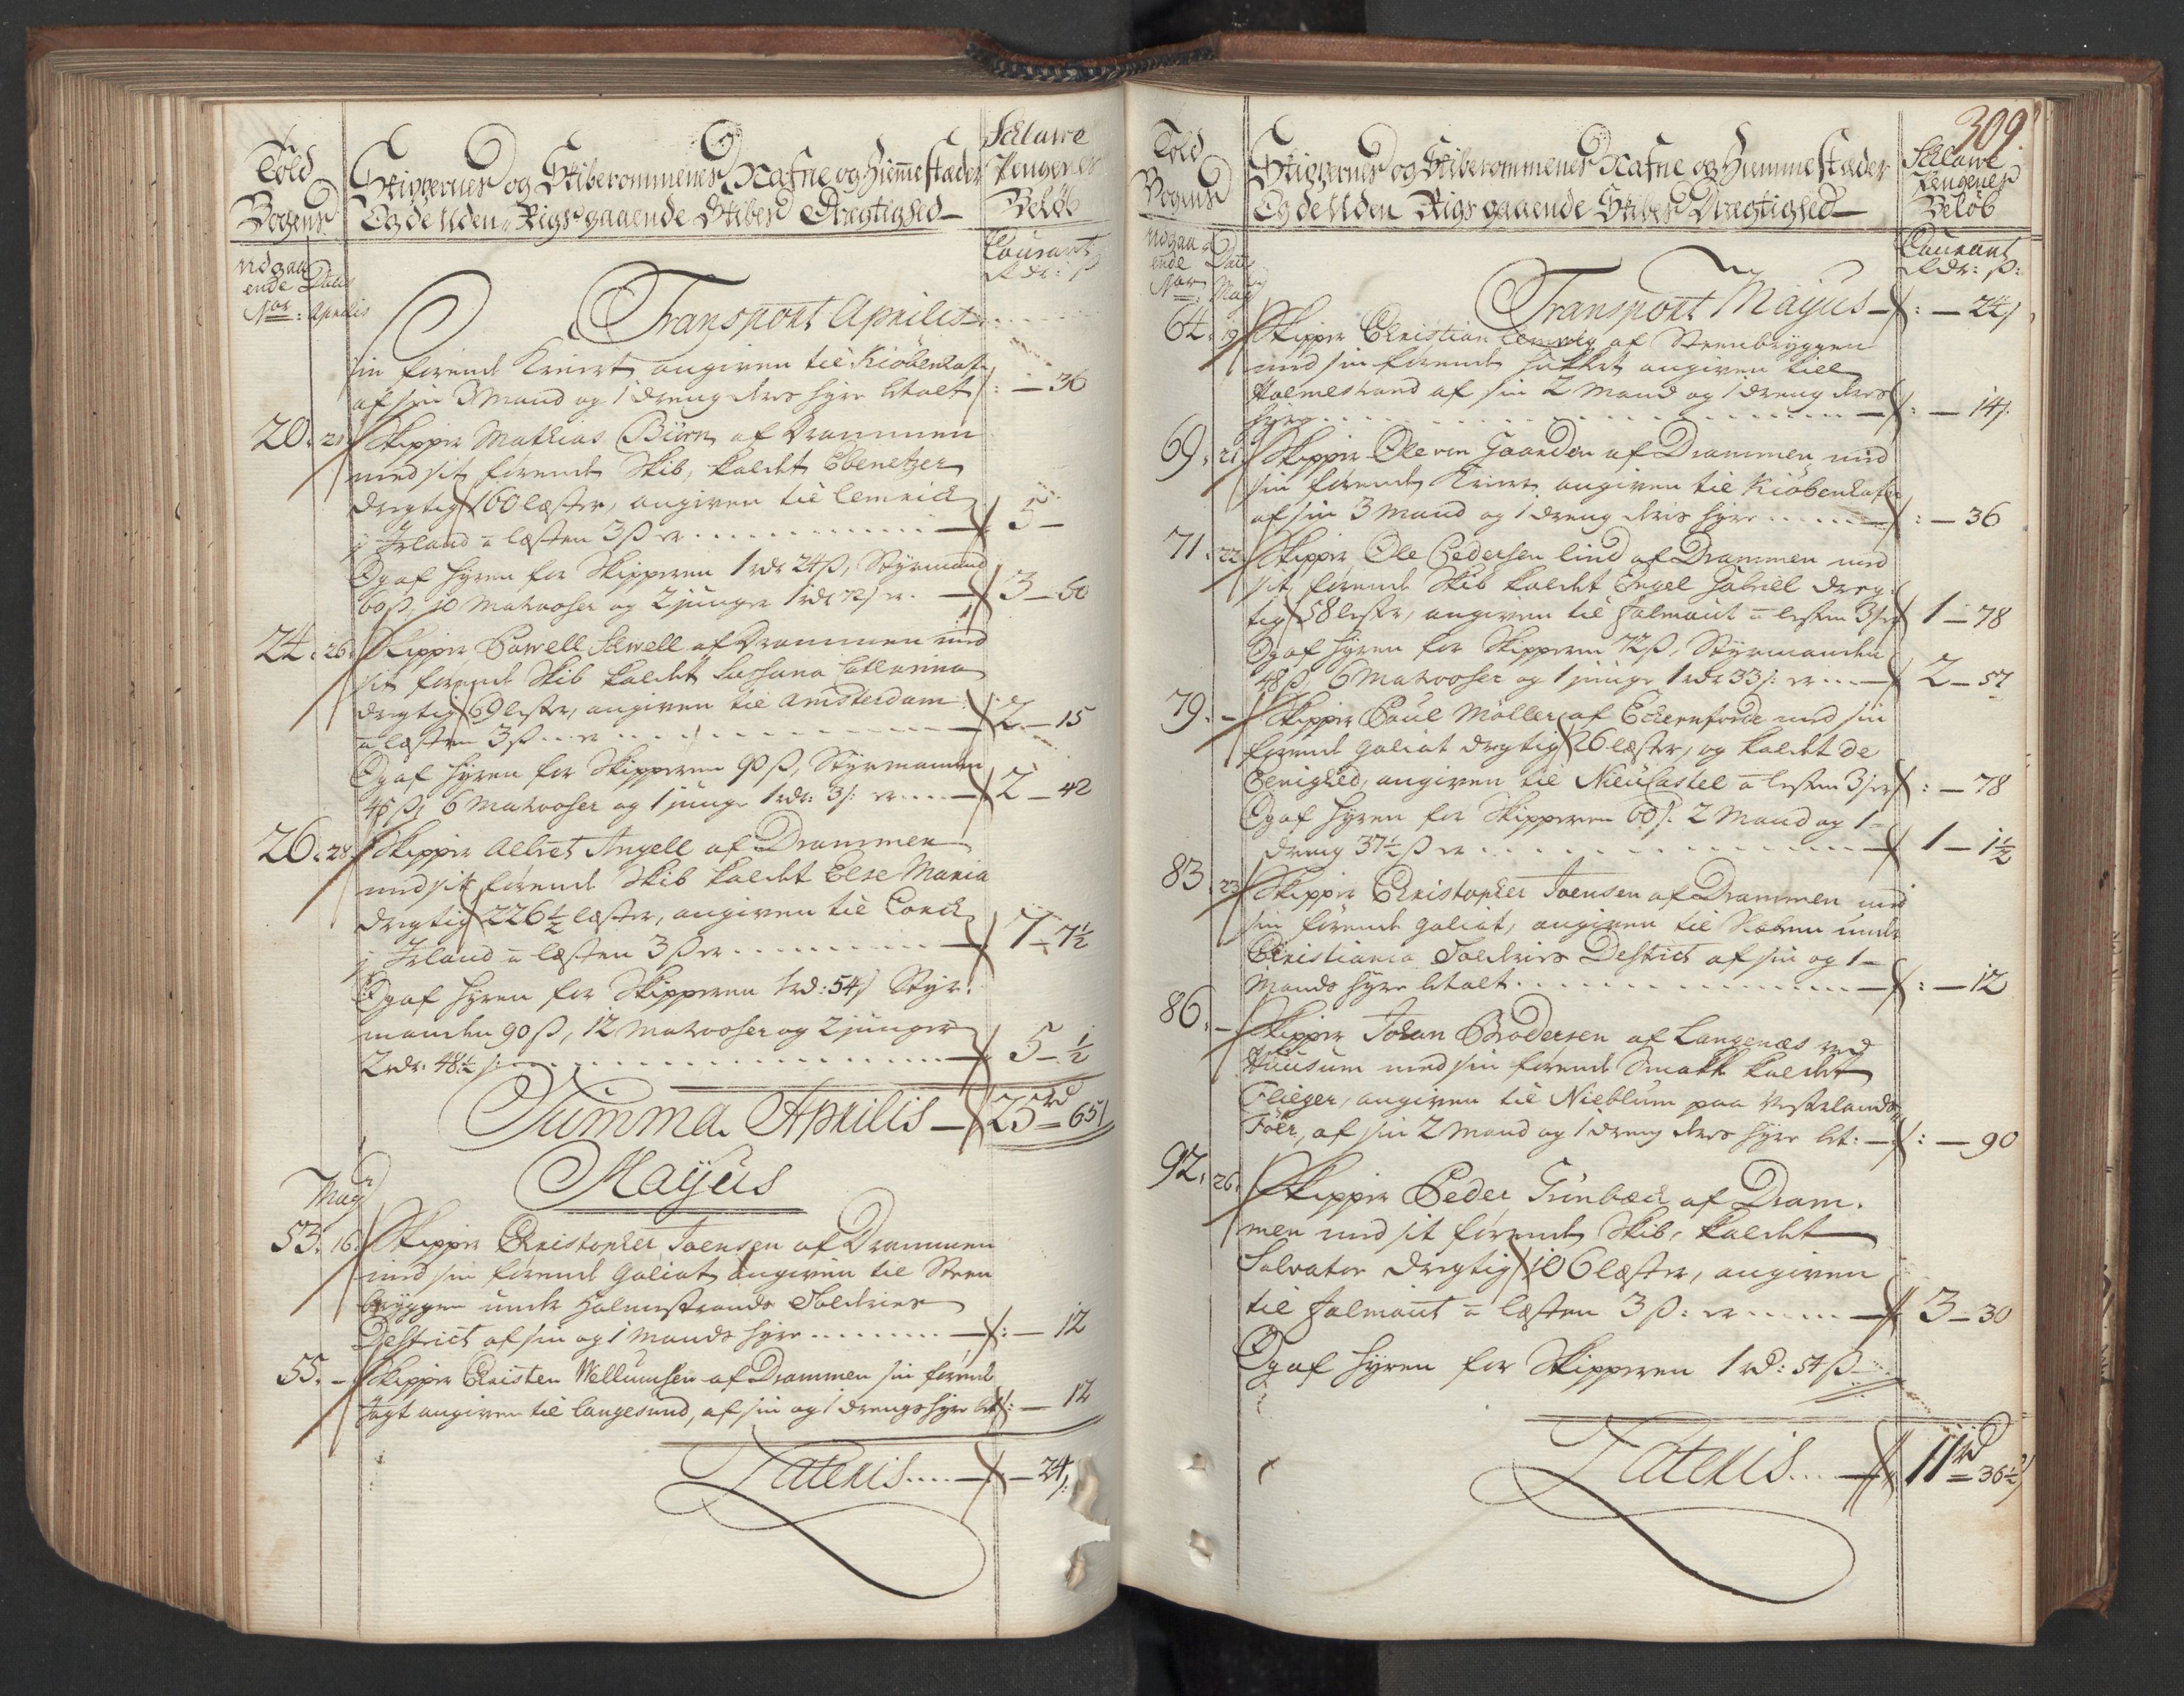 Told
Bogens
Skippernes og Skiberommenes Nafne og Hiemmestæder
Og de Uden-Rigs gaaende Skibes Drægtighed
Sclawe
Pengenes
Beløb
Udgaa
ende Datis
Nor: Aprilis
Courant
Rdr: ß
Transport Aprilis
sin førende Kreiert angiven til Kiøbenhafn
af sin 3 Mand og 1 dreng deres hyre betalt : — 36
20. 21 Skipper Mathias Biørn af Drammen
med sit førende Skib, kaldet Ebenetzer
dregtig 160 læster, angiven til Lemrick
j Irland a læsten 3 ß er 5 —
Og af hyren for Skipperen 1 rdr 24 ß, Styrmand
60 ß, 10 Matroser og 2 junger 1 rdr 72 ß er 3 — 60
24. 26. Skipper Powell Sewell af Drammen med
sit førende Skib kaldet Sussana Catharina
dregtig 69 lester, angiven til Amsterdam
a læsten 3 ß er 2 — 15
Og af hyren for Skipperen 90 ß, Styrmanden
48 ß, 6 Matroser og 1 junge 1 rdr: 3 ß: er 2 — 42
26. 28. Skipper Albret Angell af Drammen
med sit førende Skib kaldet Else Maria
dregtig 226½ læster, angiven til Corck
j Irland a læsten 3 ß er 7 — 7½
Og af hyren for Skipperen 1 rd: 54 ß Styr-
manden 90 ß, 12 Matroser og 2 junger
2 rdr. 48½ ß: 5 — ½
Summa Aprilis — 25 rd — 65 ß
Mayus
May
53. 16. Skipper Christopher Joensen af Drammen
med sin førende Galiot angiven til Steen
bryggen under Holmestrands Tolderies
Destrict af sin og 1 Mands hyre : — 12
55. — Skipper Christen Wellumsen af Drammen sin førende
Jagt angiven til Langesund, af sin og 1 drengs hyre bet : — 12
Lateris — 24 ß
309.
Told
Bogens
Skippernes og Skiberommenes Nafne og Hiemmestæder
Og de Uden Rigs gaaende Skibes Drægtighed
Sclawe
Pengenes
Beløb
Udgaa
ende Datis
Nor May
Courant
Rdr: ß:
Transport Mayus : — 24 ß
64. 19 Skipper Christian Lemvig af Steenbryggen
med sin førende Hukkert angiven till
Holmestrand af sin 2 Mand og 1 dreng deres
hyre : — 14 ß
69. 21 Skipper Ole von Gaarden af Drammen med
sin førende Kreiert angiven til Kiøbenhafn
af sin 3 Mand og 1 dreng deris hyre : — 36
71. 22 Skipper Ole Pedersen Lind af Drammen med
sit førende Skib kaldet Engel Gabriel dreg-
tig 58 lester, angiven til Falmout a lesten 3 ß er 1 — 78
Og af hyren for Skipperen 72 ß, Styrmanden
48 ß, 6 Matroser og 1 junge 1 rdr 33 ß: er 2 — 57
79. — Skipper Poul Møller af Eckernforde med sin
førende Galiot dregtig 26 læster, og kaldet de
Eenighed, angiven til NieuCastel a lesten 3 ß er : — 78
Og af hyren for Skipperen 60 ß: 2 Mand og 1
dreng 37½ ß er 1 — 1½
83. 23 Skipper Christopher Joensen af Drammen med
sin førende galiot, angiven til Næsen under
Christiania Tolderies Destrict af sin og 1
Mands hyre betalt : — 12
86. — Skipper Johan Brodersen af Langenæs ved
Huusum med sin førende Smakk kaldet
Flieger, angiven til Nieblum paa Vesterlands
Föer, af sin 2 Mand og 1 dreng deres hyre bet: : — 90
92. 26. Skipper Peder Grünbeck af Dram-
men med sit førende Skib, kaldet
Salvator dregtig 106 læster, angiven
til Falmout a læsten 3 ß: er 3 — 30
Og af hyren for Skipperen 1 rd: 54 ß
Lateris 11 rd — 36½ ß